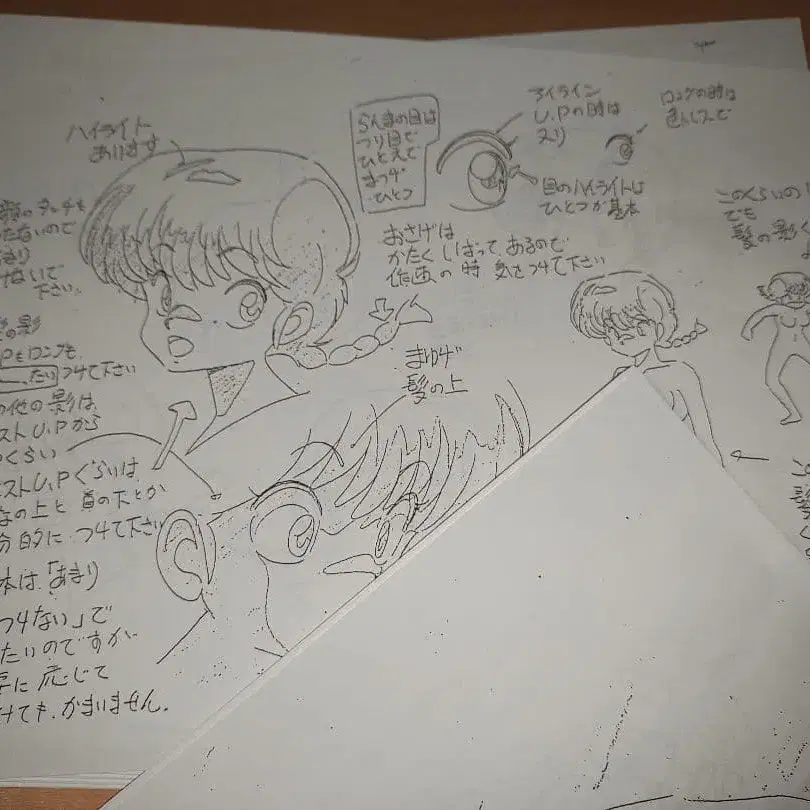 ハイライト
あります
らんまの目は
つり目で
ひとえで
まつゲ
ひとつ
アイライン
U.Pの時は
ヌリ
ロングの時は
色トレスで
目のハイライトは
ひとつが基本
おさげは
かたくしばってあるので
作画の時 気をつけて下さい
まゆゲ
髪の上
このくらいの
でも
髪の影
顔のタッチも
たないので
まり
けないで
下さい。
の影
Pもロングも
たい つけて下さい
の他の影は
スト U.Pから
くらい
ストU.Pぐらいは
の上と 首の下とか
分的に つけて下さい
本は「あまり
つけない」で
たいのですが
に 応じて
けても かまいません。